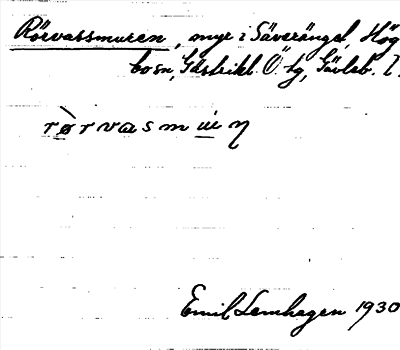 Rörvassmuren, myr i Säverängel, Hög
bo sn, Gästrikl. Ö. tg, Gävleb. l.
rørvasmuin
Emil Lemhagen 1930